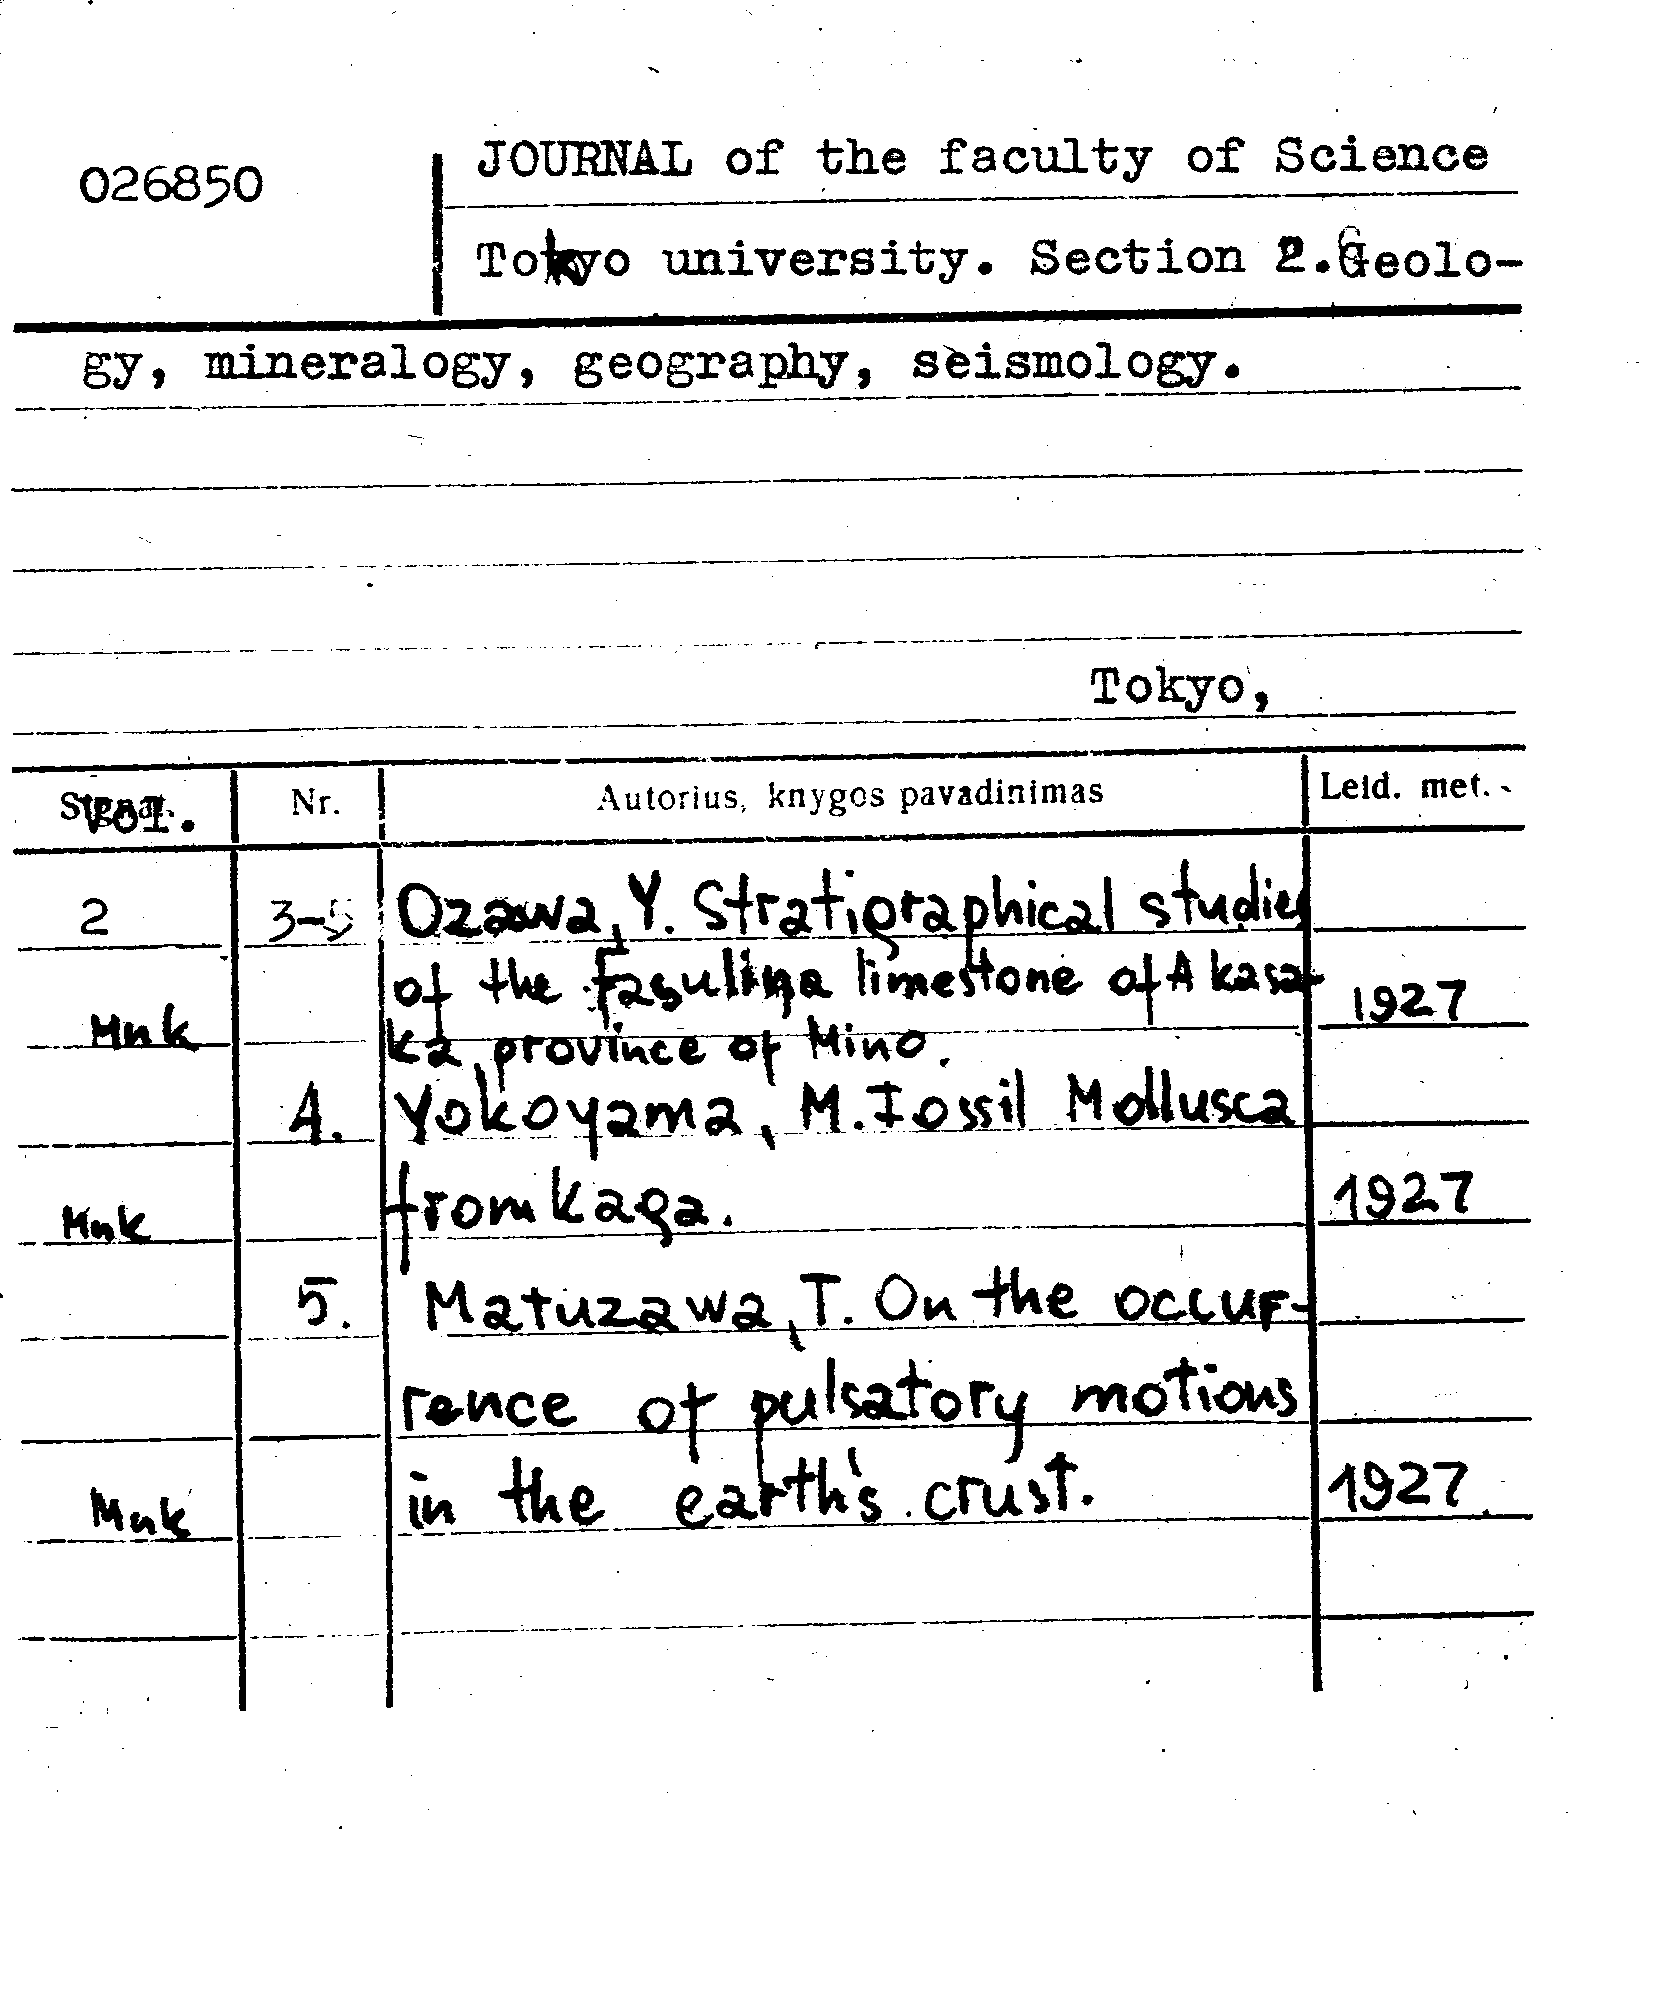 026850
JOURNAL of the faculty of Science
Tokyo university. Section 2.Geolo-
gy, mineralogy, geography, seismology.
Tokyo,
Vol. Nr. Autorius, knygos pavadinimas Leid. met.
2 3-5 Ozawa, Y. Stratigraphical studies
of the limestone of Akasa-
Mnk 1927
ka, province of Mino.
4. Yokoyama, M. Fossil Mollusca
Mnk from Kaga. 1927
5. Matuzawa, T. On the occur-
rence of pulsatory motions
Mnk in the earth's crust. 1927